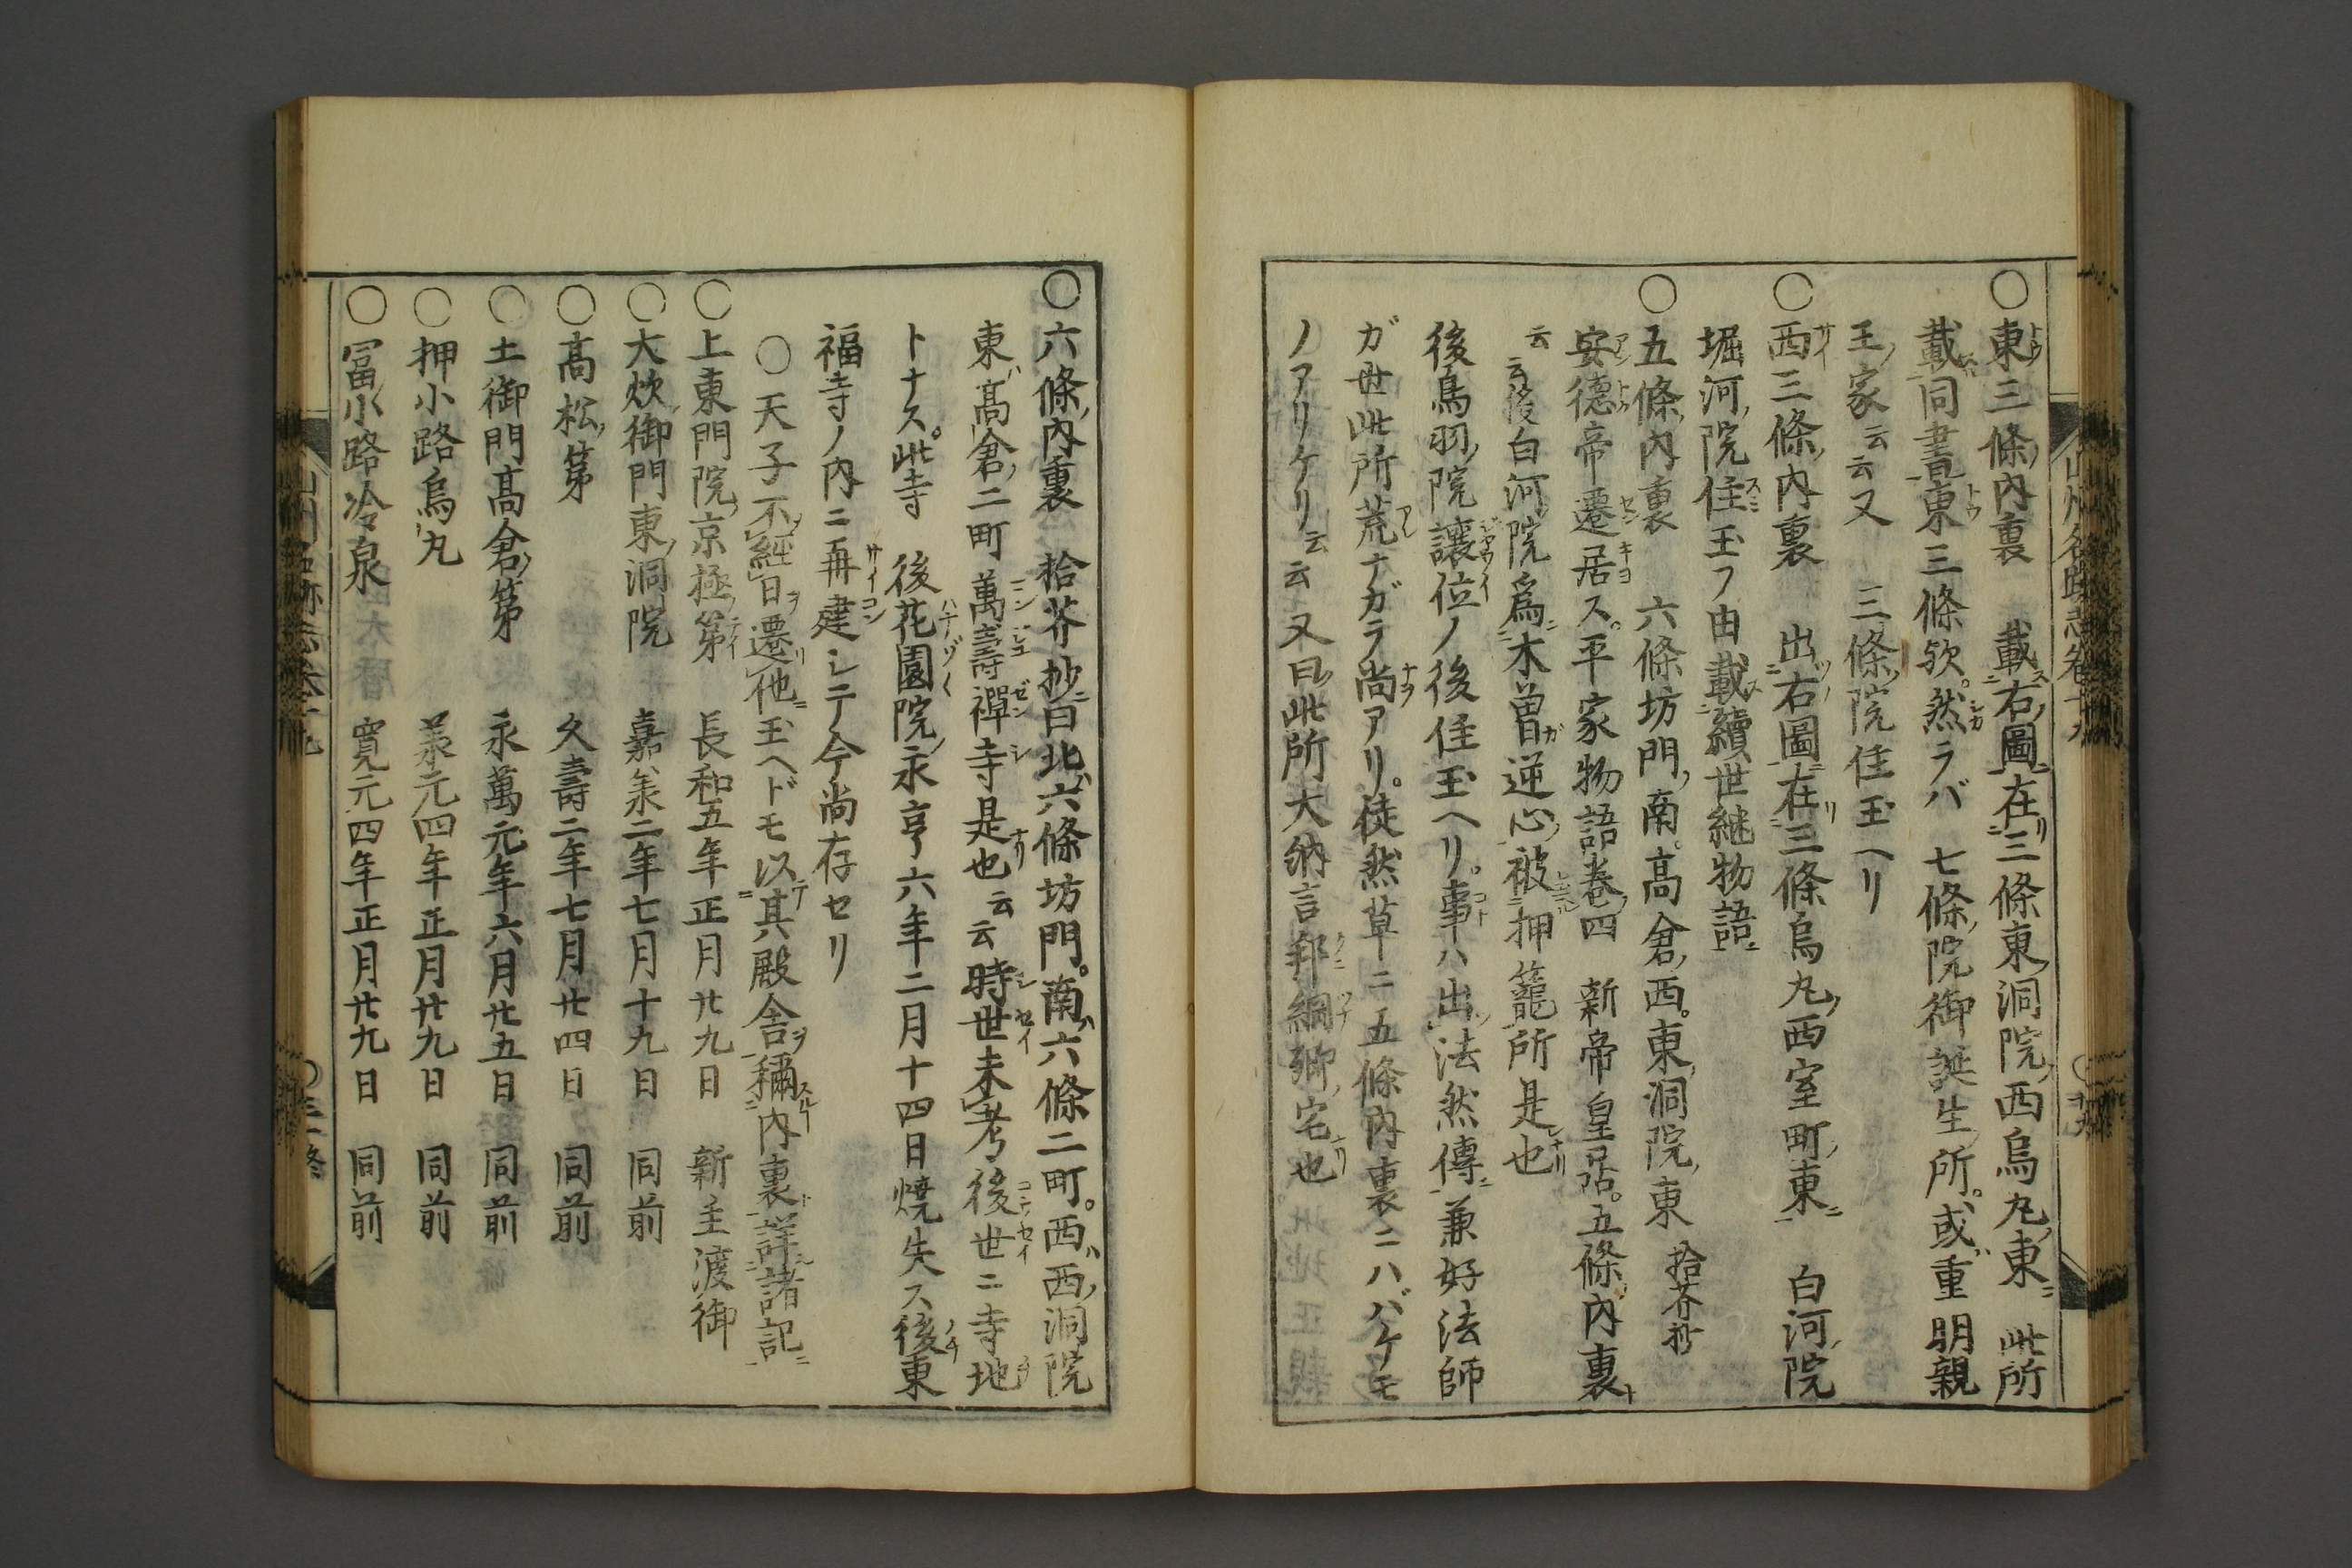 〇東三條ノ內裏　載ス右ノ圖ニ在リ三條東洞院ノ西烏丸ノ東ニ　此所
載同書東三條欤。然ラバ七條ノ院御誕生ノ所。或ハ重明親
王ノ家云云又　三條ノ院住玉ヘリ
〇西三條ノ內裏　出ツ右ノ圖ニ在リ三條烏丸ノ西室町ノ東ニ　白河ノ院
堀河ノ院住玉フ由載ス續世継物語ニ
〇五條ノ內裏　六條坊門ノ南。高倉ノ西。東ノ洞院ノ東　拾芥抄
安德帝遷居ス。平家物語卷ノ四　新帝皇居。五條ノ內裏ナ
云云後白河ノ院爲ニ木曽ガ逆心ノ被ル押籠所是也
後鳥羽ノ院讓位ノ後住玉ヘリ。事ハ出ツ法然傳ニ兼好法師
ガ世此所荒ナガラ尚アリ。徒然草ニ五條內裏ニハバケモ
ノアリケリ云云又曰此所大納言邦綱ノ卿ノ宅也
〇六條ノ內裏　拾芥抄ニ曰北ハ六條坊門。南ハ六條二町。西ハ西ノ洞院
東ハ高倉ノ二町萬壽禪寺是也云云時世未考後世ニ寺地
トナス。此寺　後花園院ノ永亨六年二月十四日燒失ス後東
福寺ノ內ニ再建シテ今尚存セリ
〇天子不經日ヲ遷リ他ニ玉ヘドモ以テ其殿舍ヲ稱スルヿ內裏ト詳ニ諸記ニ
〇上東門院ノ京極ノ第　長和五年正月廿九日　新主渡御
〇大炊御門東ノ洞院　嘉美二年七月十九日　同前
〇高松ノ第　久壽二年七月廿四日　同前
〇土御門高倉ノ第　永萬元年六月廿五日　同前
〇押小路烏丸　美元四年正月廿九日　同前
〇冨小路冷泉　寬元四年正月廿九日　同前